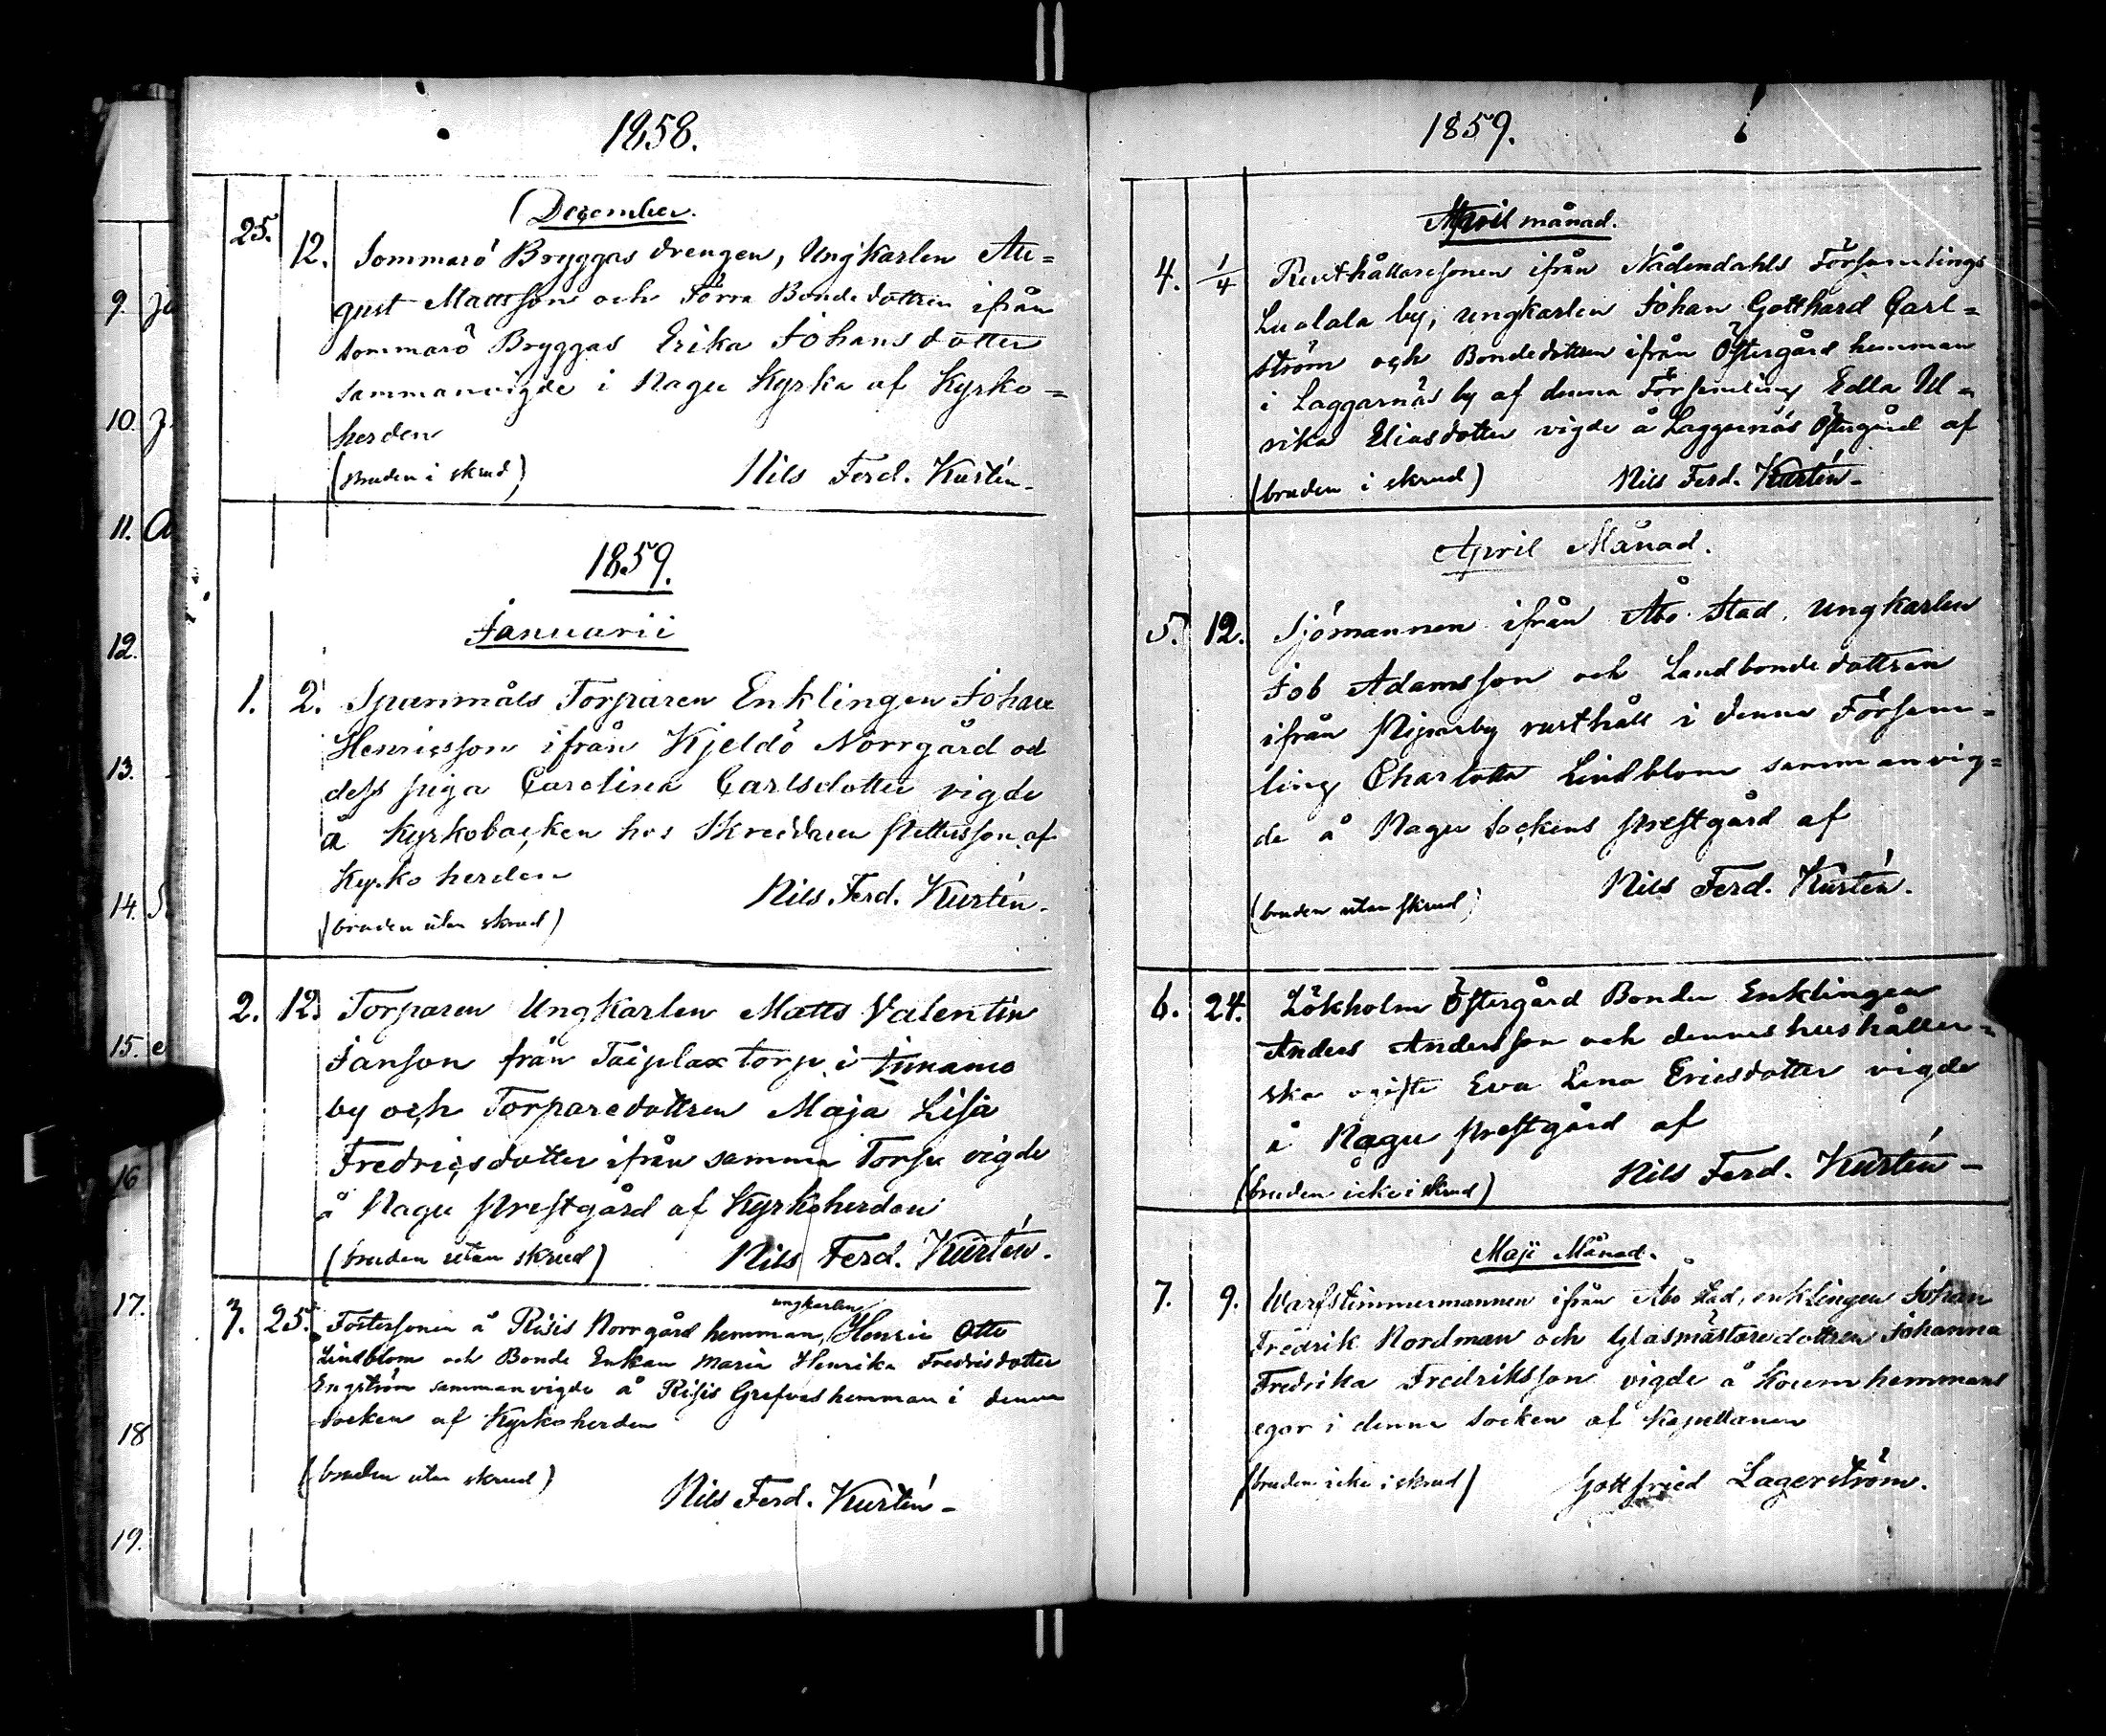 1858.
December.
25. 12. Sommarö Bryggas drengen, Ungkarlen Au=
gust Mattsson och Förra Bondedottren ifrån
Sommarö Bryggas Erika Johansdotter
sammanvigde i Nagu Kyrka af Kyrko=
herden
(Bruden i skrud) Nils Ferd. Kurtén.
1859.
Januarii
1. 2. Spunmåls Torparen Enklingen Johan
Henricsson ifrån Kjeldö Norrgård od
dess piga Carolina Carlsdotter vigde
å Kyrkobacken hos Skreddaren af
Kyrkoherden
Nils. Ferd. Kurtén.
(bruden utan skrud)
2. 12. Torparen Ungkarlen Matts Valentin
Janson från Taiplax torp i Finnamo
by och Torparedottren Maja Lisa
Fredricsdotter ifrån samma Torp vigde
å Nagu Prestgård af Kyrkoherden
(bruden utan skrud) Nils Ferd. Kurtén.
ungkarlen
3. 25. Fostersonen å Risis Norrgård hemman, Henric Otto
Lindblom och Bonde Enkan Maria Henrika Fredricsdotter
Engström sammanvigde å Risis Grefvas hemman i denna
Socken af Kyrkoherden
(bruden utan skrud)
Nils Ferd. Kurtén.
1859.
April månad.
4. 1/4 Rusthållaresonen ifrån Nådendahls Församlings
Luolala by, ungkarlen Johan Gotthard Carl=
ström och Bondedottren ifrån Östergård hemman
i Laggarnäs by af denna Församling Edla Ul=
rika Eliasdotter vigde å Laggarnäs Östergård af
(bruden i skrud) Nils Ferd. Kurtén.
April Månad.
5. 12. Sjömannen ifrån Åbo Stad, Ungkarlen
Job Adamsson och Landbondedottren
ifrån rusthåll i denna Försam=
ling Charlotta Lindblom sammanvig=
de å Nagu Sockens prestgård af
Nils Ferd. Kurtén.
(bruden utan skrud)
6. 24. Lökholm Östergård Bonden Enklingen
Anders Andersson och dennes hushåller=
ska ogifte Eva Lena Ericsdotter vigde
å Nagu prestgård af
Nils Ferd. Kurtén
(bruden icke i skrud)
Maji Månad.
7. 9. Warfstimmermannen ifrån Åbo Stad, enklingen Johan
Fredrik Nordman och Glasmästaredottren Johanna
Fredrika Fredriksson vigde å hemmans
egor i denna Socken af Kapellanen
(bruden icke i skrud) Gottfried Lagerström.
9.
10.
11.
12.
13.
14.
15.
16
17.
18
19.